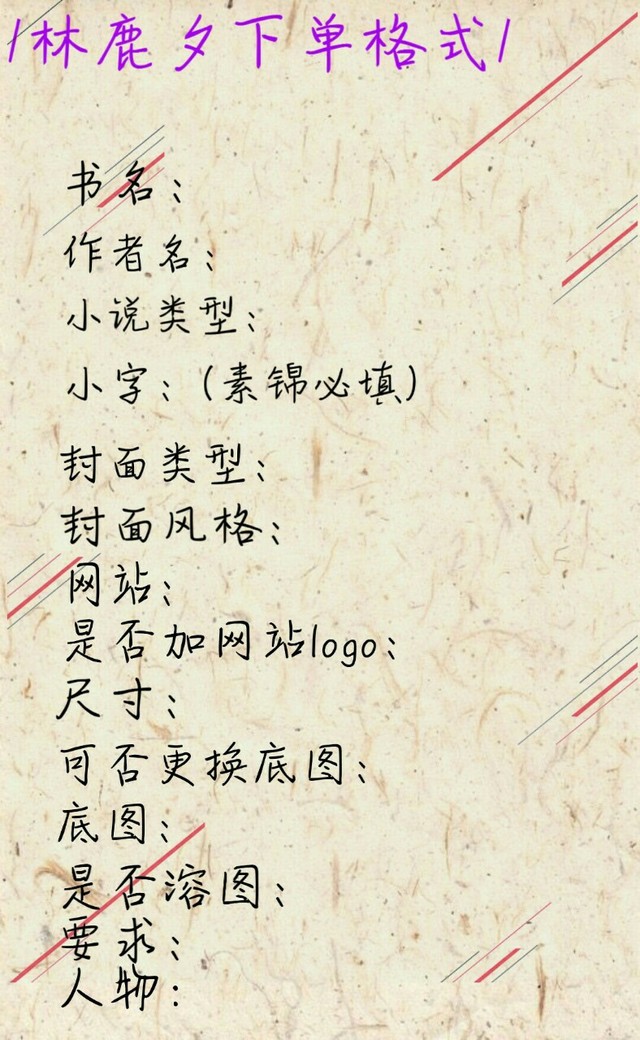 /林鹿夕下单格式/
书名：
作者名：
小说类型：
小字：（素锦必填）
封面类型：
封面风格：
网站：
是否加网站logo：
尺寸：
可否更换底图：
底图：
是否溶图：
要求：
人物：